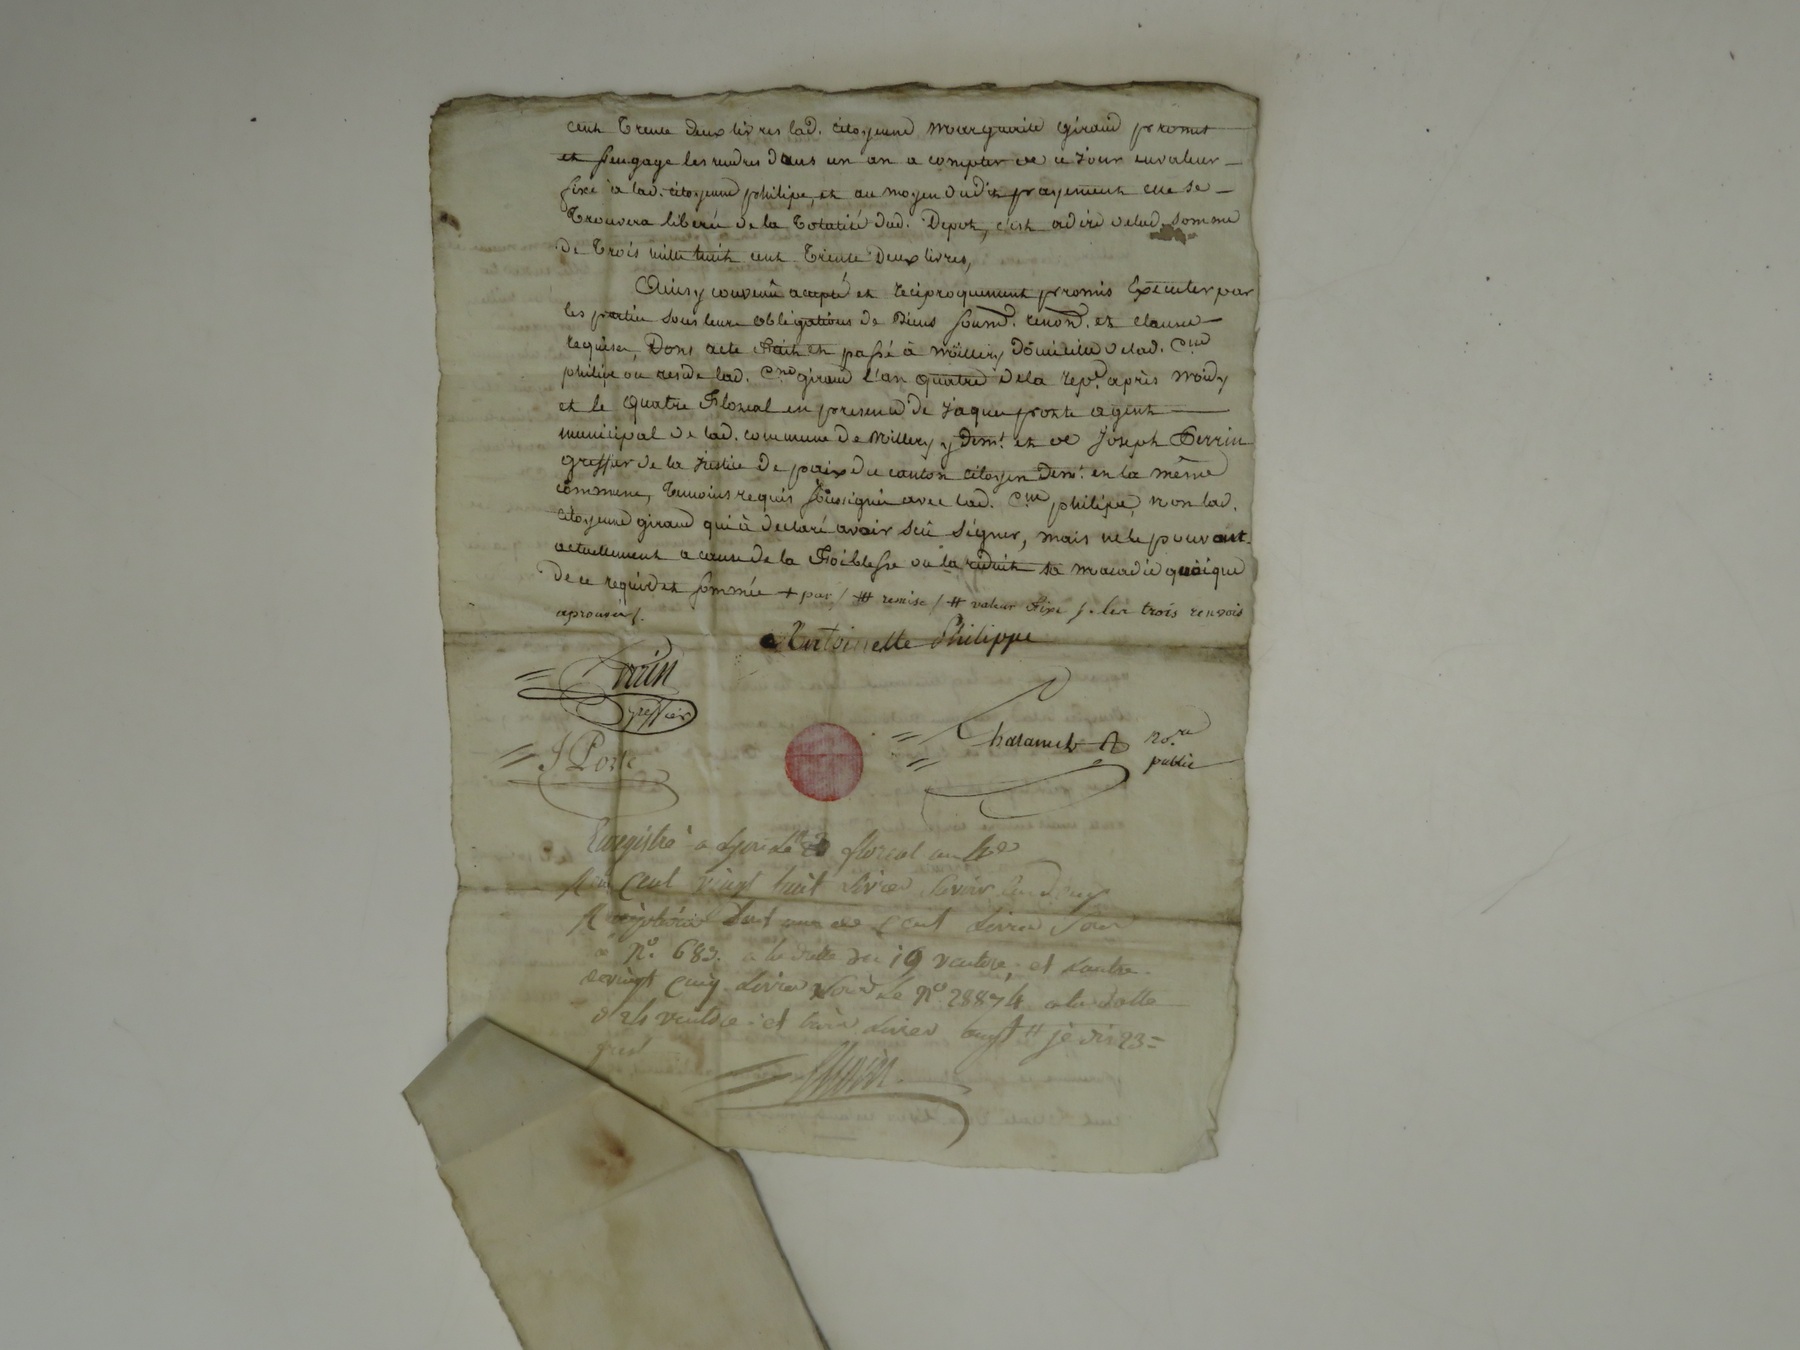 cent trente deux livres lad. citoyenne marguerite giraud promet
et s'engage les rendres dans un an a compter de ce jour en valeur
fixe a lad. citoyenne philipe, et au moyen dudit payement elle se
trouvera libérée de la totalité dud. Depot, c'est adire delad. somme
de trois mille huit cent trente deux livres,
Ainsy convenû accepté et réciproquement promis Exécuter par
les parties sous leurs obligations de Biens soumd. renond. et clauses
requises, Dont acte Fait et passé à Millery Domicile delad. Cne
philipe ou reside lad. Cne giraud l'an quatre de la repe. après midy
et le quatre Floreal en presence de Jaque porte agent
municipal de lad. commune de Millery y demt. et de Joseph Perrin
greffier de la Justice de paix du canton citoyen demt. en la même
commune, temoins requis soussignés avec lad. Cne philipe, non lad.
citoyenne giraud qui à declaré avoir sçu signer, mais ne le pouvant
actuellement a cause de la Foiblesse ou la reduit sa maladie quoique
de ce requise et sommée + par / # remise / # valeur fixe /. les trois renvois
aprouvés /.
Antoinette Philippe
Perrin
greffier
J Porte
nore
public
Enregistré a Lyon le floreal an 4e
cent vingt huit livres savoir en deux
dont une de cent livres sous
le No. 683. a la datte du 19 ventose, et l'autre
de vingt cinq livres sous le No. 28874 a la datte
du 24 ventose. et trois livres je dis 23=